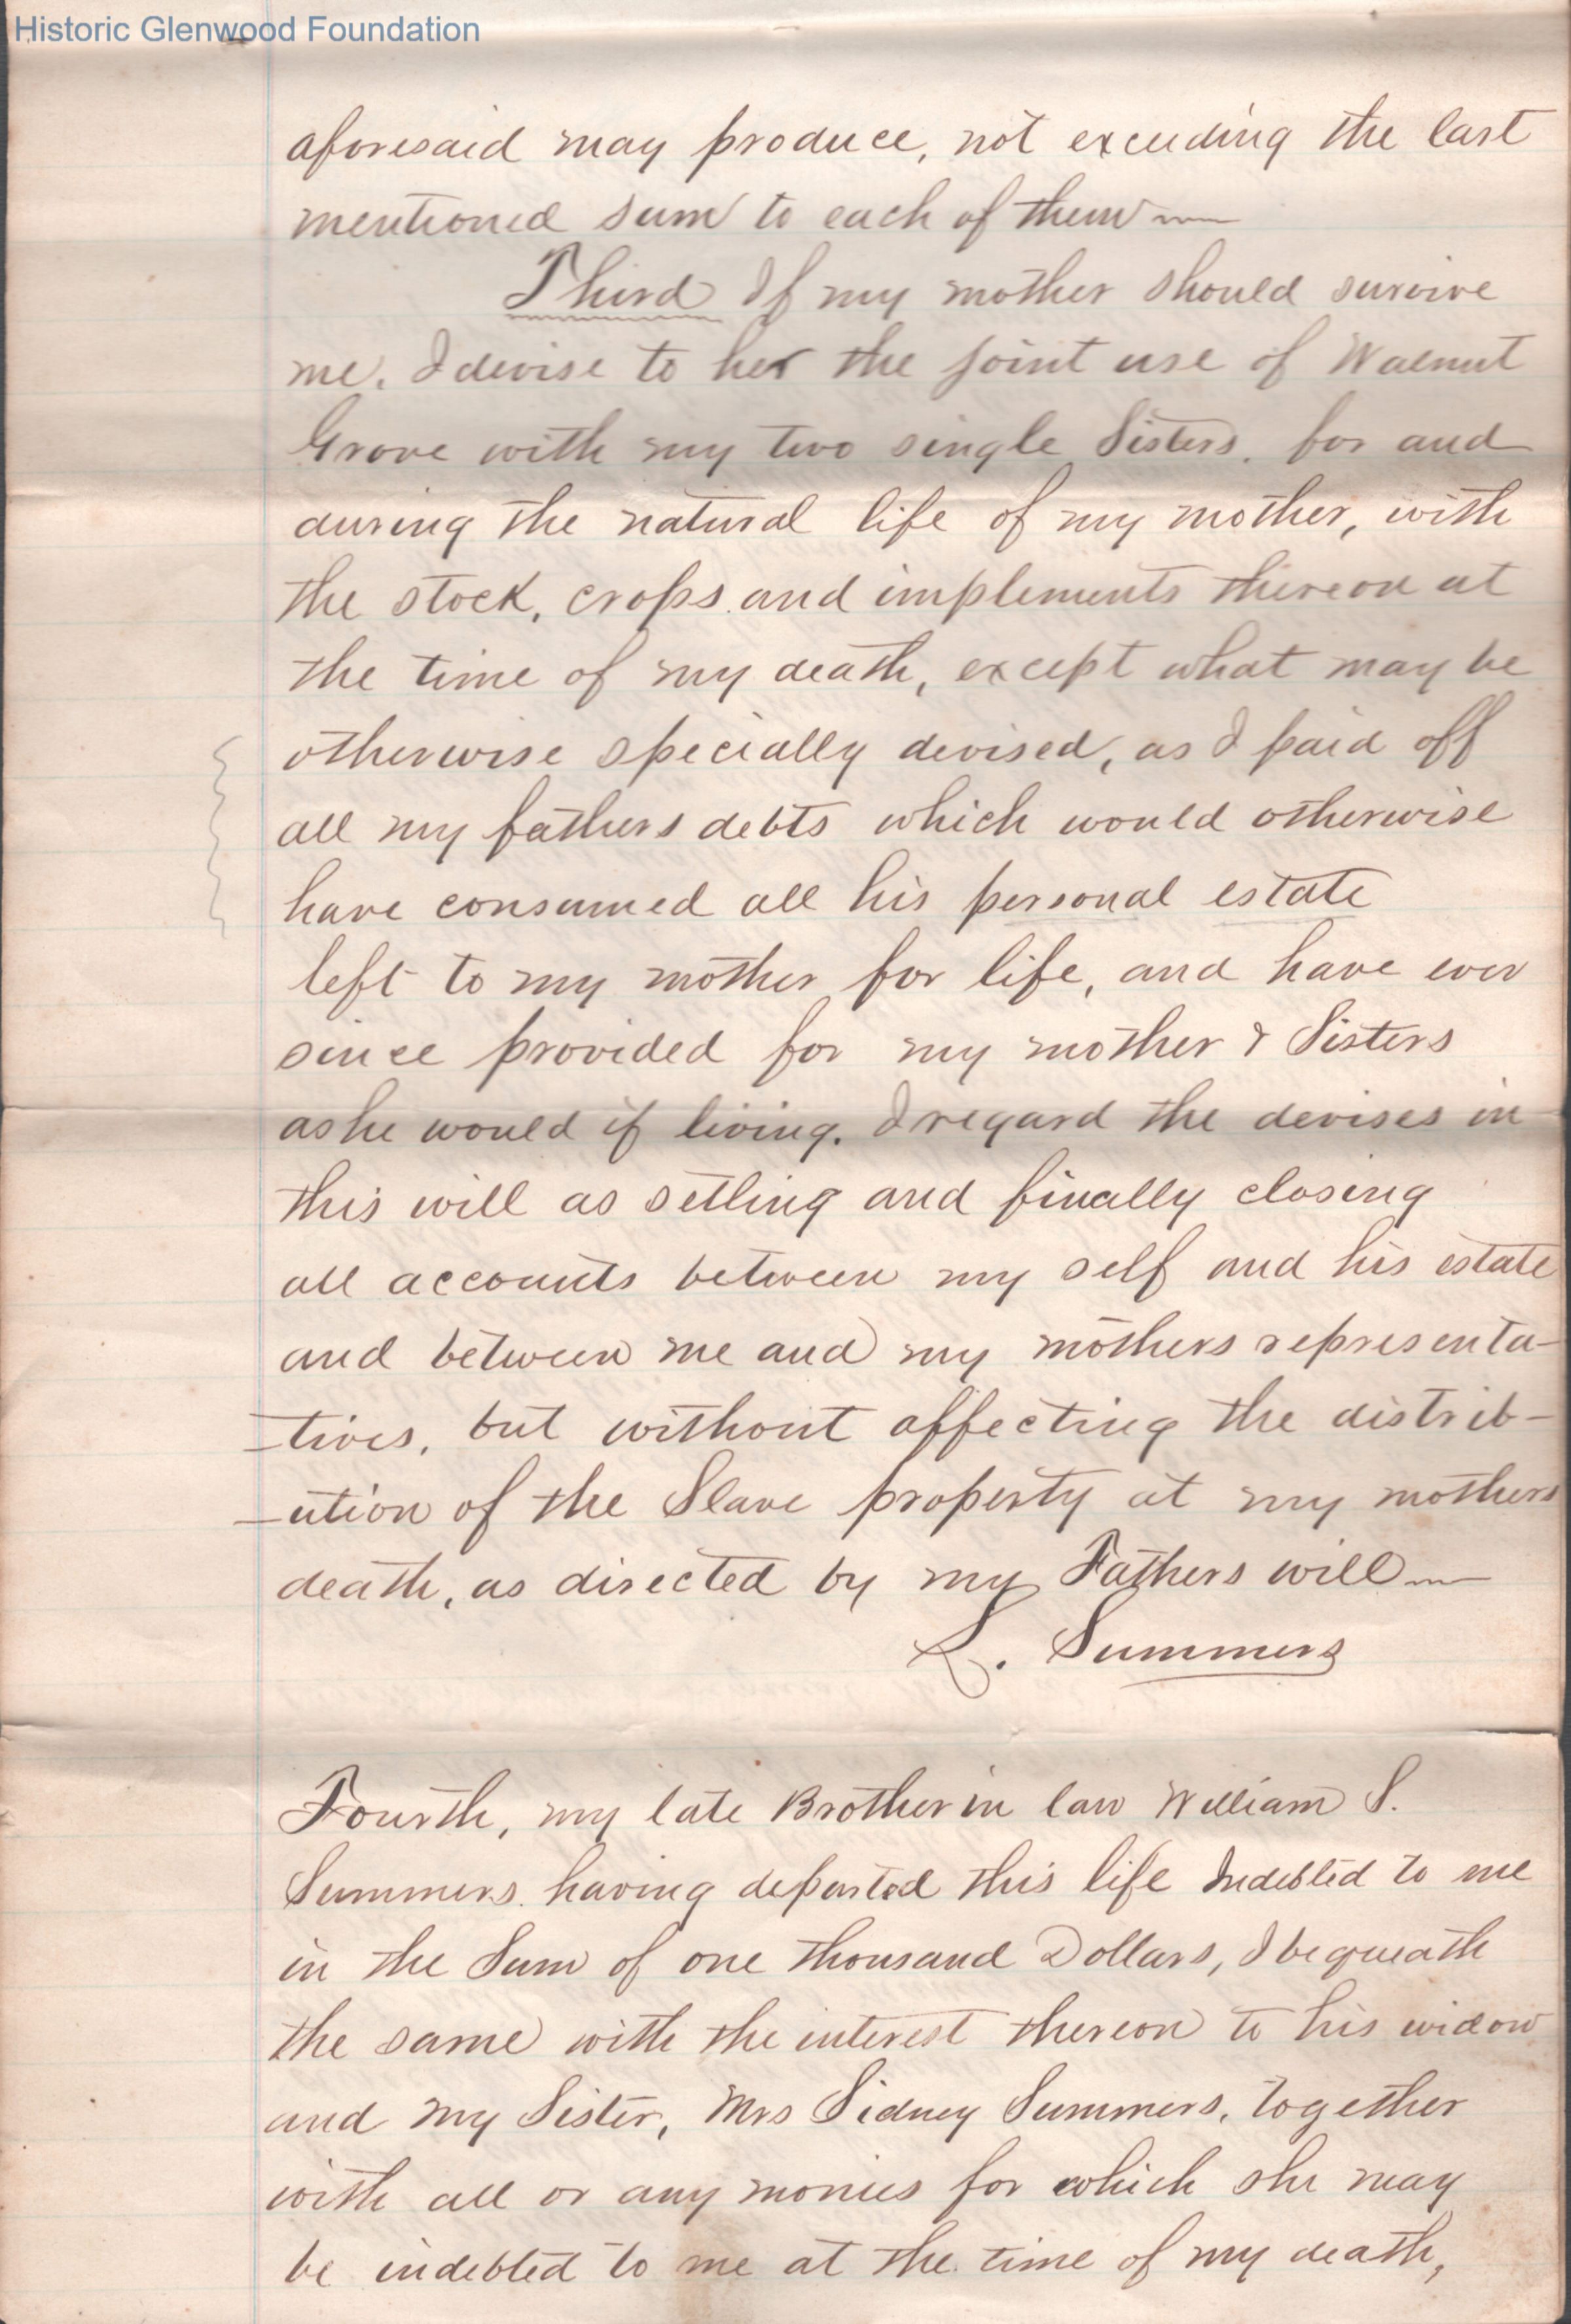 Historic Glenwood Foundation
aforesaid may produce, not exceeding the last
mentioned sum to each of them
Third If my mother should survive
me, I devise to her the joint use of Walnut
Grove with my two single Sisters, for and
during the natural life of my mother, with
the stock, crops and implements thereon at
the time of my death, except what may be
otherwise specially devised, as I paid off
all my fathers debts which would otherwise
have consumed all his personal estate
left to my mother for life, and have ever
since provided for my mother & Sisters
as he would if living. I regard the devises in
this will as setling and finally closing
all accounts between my self and his estate
and between me and my mothers representa-
-tives, but without affecting the distrib-
-ution of the Slave property at my mothers
death, as directed by my Fathers will
L. Summers
Fourth, my late Brother in law William S.
Summers having departed this life Indebted to me
in the Sum of one thousand Dollars, I bequeath
the same with the interest thereon to his widow
and my Sister, Mrs Sidney Summers, together
with all or any monies for which she may
be indebted to me at the time of my death,